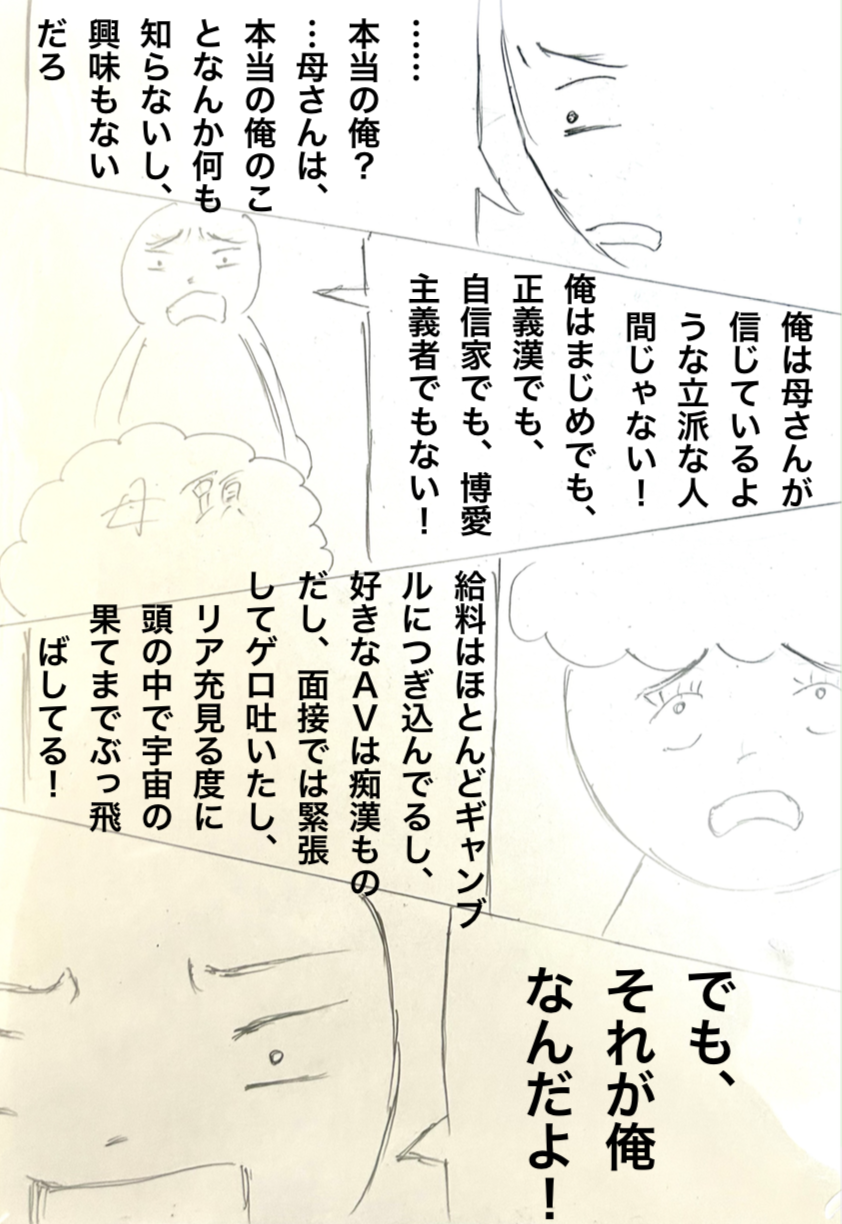 ……
本当の俺？
…母さんは、
本当の俺のこ
となんか何も
知らないし、
興味もない
だろ
俺は母さんが
信じているよ
うな立派な人
間じゃない！
俺はまじめでも、
正義漢でも、
自信家でも、博愛
主義者でもない！
母 頭
給料はほとんどギャンブ
ルにつぎ込んでるし、
好きなＡＶは痴漢もの
だし、面接では緊張
してゲロ吐いたし、
リア充見る度に
頭の中で宇宙の
果てまでぶっ飛
ばしてる！
でも、
それが俺
なんだよ！